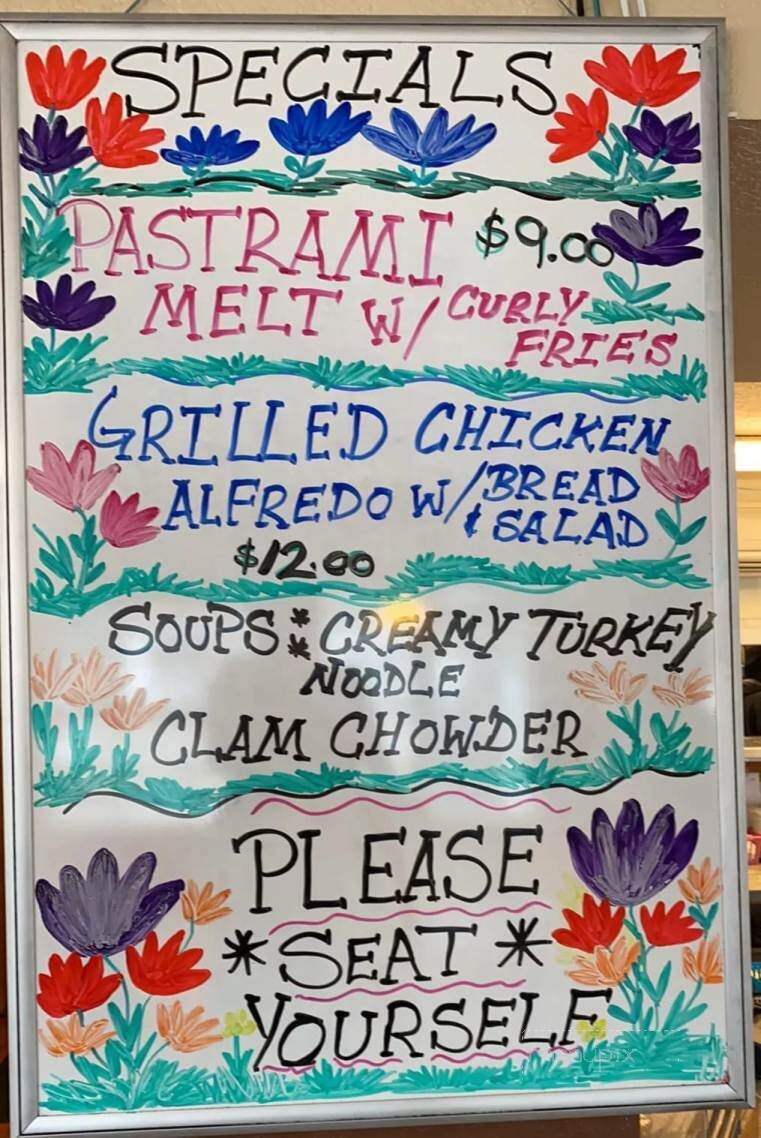 SPECIALS
PASTRAMI $9.00
MELT W/ CURLY
FRIES
GRILLED CHICKEN
ALFREDO W/ BREAD
& SALAD
$12.00
SOUPS: CREAMY TURKEY
NOODLE
CLAM CHOWDER
PLEASE
*SEAT*
YOURSELF